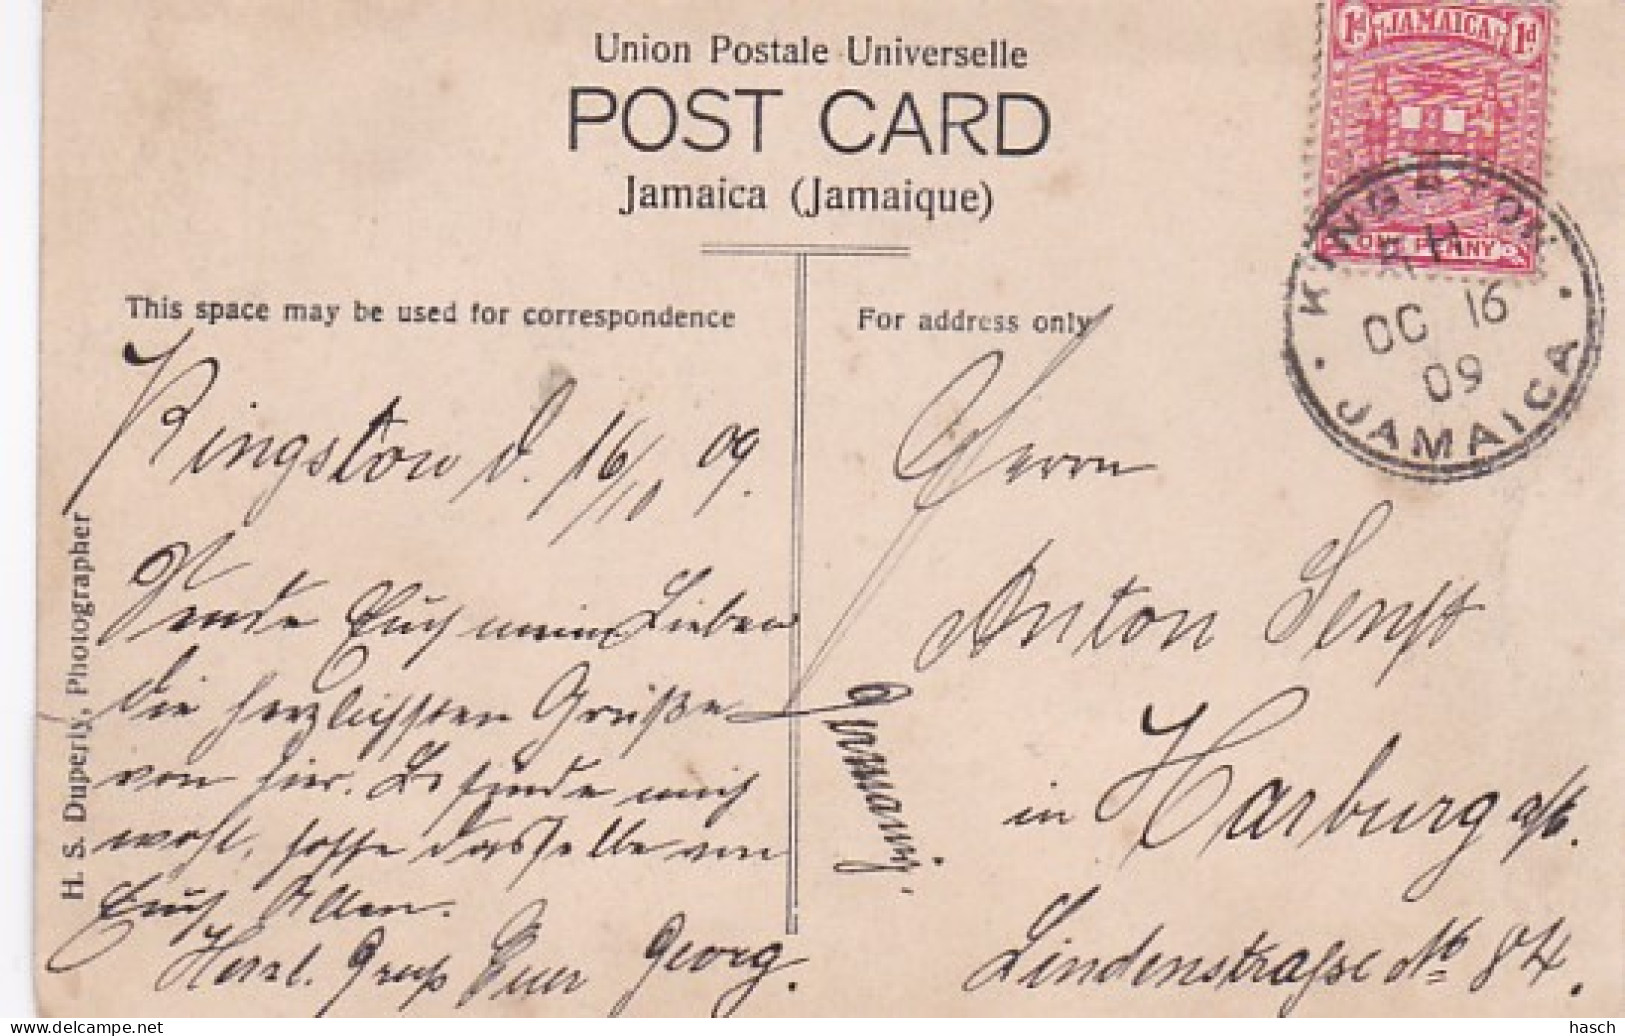 Union Postale Universelle
POST CARD
Jamaica (Jamaique)
1d JAMAICA 1d
POSTAGE REVENUE
ONE PENNY
KINGSTON
OC 16
09
JAMAICA
This space may be used for correspondence
Kingston d. 16/10 09.
Sende Euch mein Lieben
die herzlichsten Grüße
von hier. Befinde mich
wohl, hoffe dasselbe von
Euch Allen.
Herzl. Gruß Euer Georg.
H. S. Duperly, Photographer
For address only
Herrn
Anton Senft
in Harburg a/E.
Lindenstraße No 84.
Germany
hasch